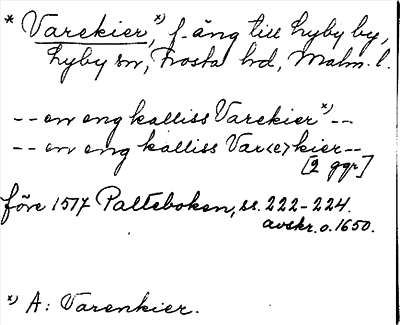 * Varekier,*) f. äng till Lyby by,
Lyby sn, Frosta hd, Malm. l.
-- en eng kalliss Varekier*) --
-- en eng kalliss Var<e>kier --
[2 ggr]
före 1517 Palteboken, ss. 222-224.
avskr. o. 1650.
*) A: Varenkier.